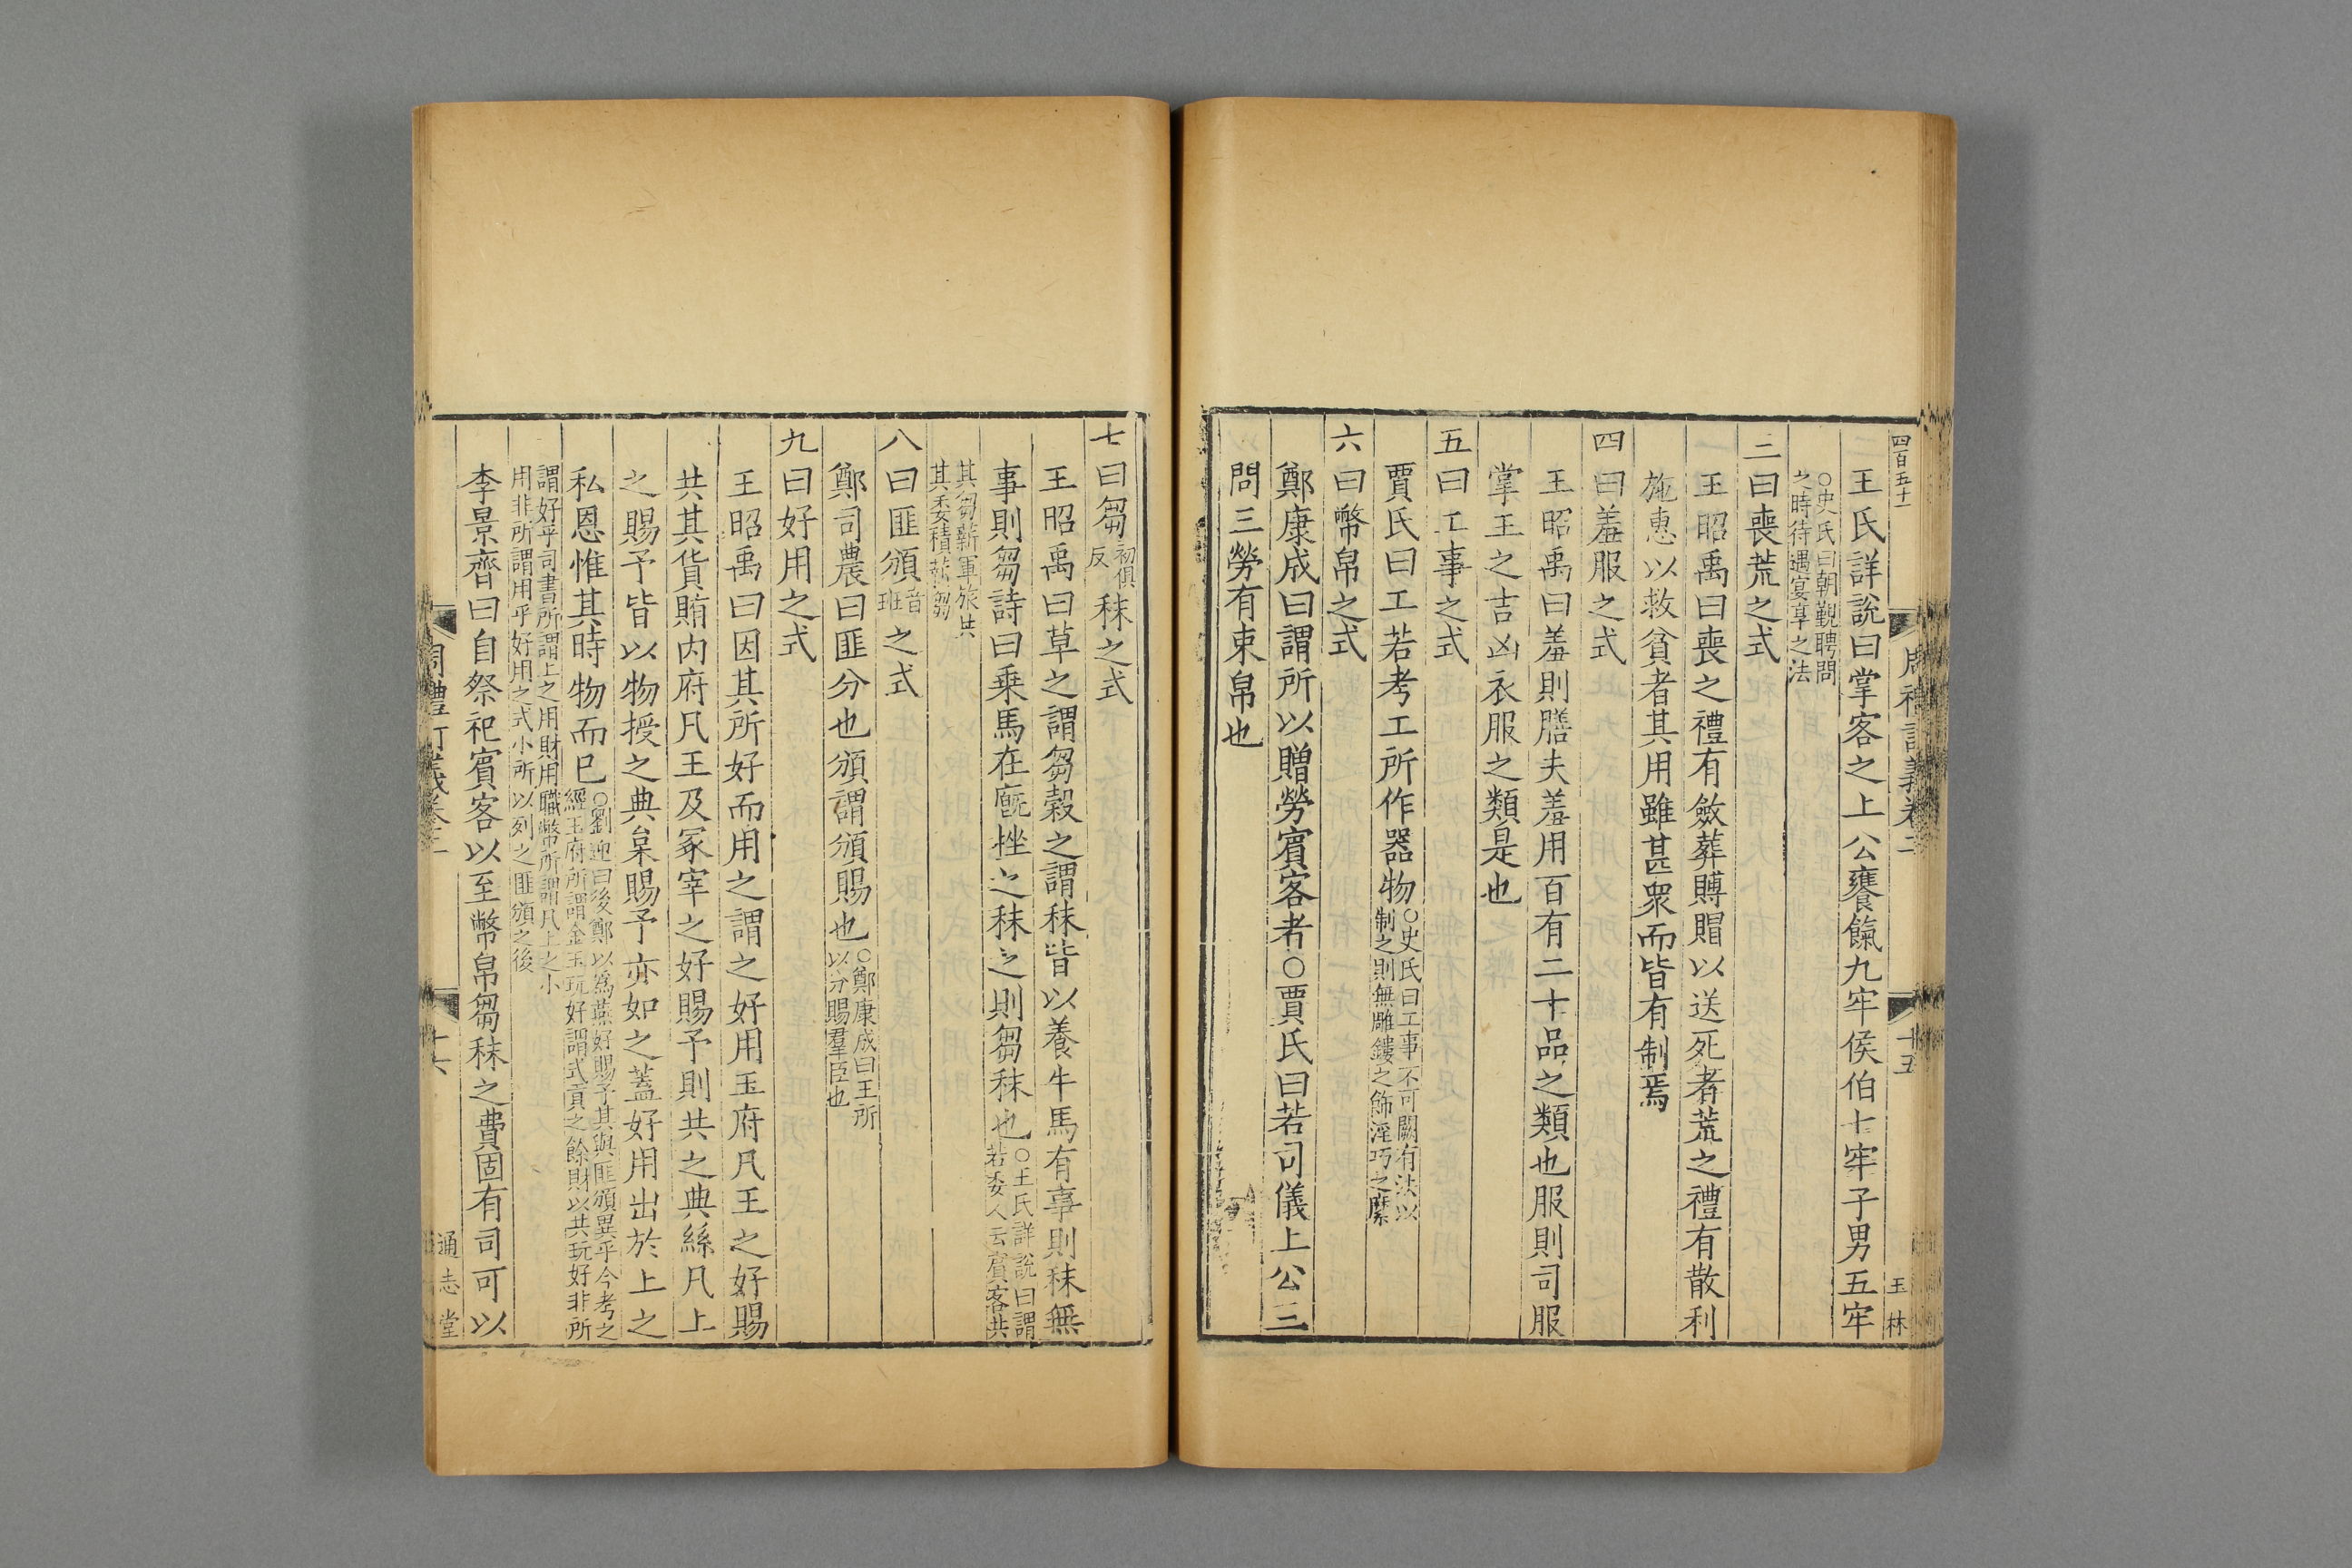 四百五十
周禮訂義卷二
十五
玉林
王氏詳說曰掌客之上公饔餼九牢侯伯七牢子男五牢
○史氏曰朝覲聘問
之時待遇宴享之法
三曰喪荒之式
王昭禹曰喪之禮有斂葬賻賵以送死者荒之禮有散利
施惠以救貧者其用雖甚衆而皆有制焉
四曰羞服之式
王昭禹曰羞則膳夫羞用百有二十品之類也服則司服
掌王之吉凶衣服之類是也
五曰工事之式
賈氏曰工若考工所作器物○史氏曰工事不可闕有法以
制之則無雕鏤之飾淫巧之縻
六曰幣帛之式
鄭康成曰謂所以贈勞賓客者○賈氏曰若司儀上公三
問三勞有束帛也
七曰芻初俱反秣之式
王昭禹曰草之謂芻穀之謂秣皆以養牛馬有事則秣無
事則芻詩曰乗馬在廐挫之秣之則芻秣也○王氏詳說曰謂
若委人云賓客共
其芻薪軍旅共
其委積芻
八曰匪頒音班之式
鄭司農曰匪分也頒謂頒賜也○鄭康成曰王所
以分賜羣臣也
九曰好用之式
王昭禹曰因其所好而用之謂之好用玉府凡王之好賜
共其貨賄内府凡王及冢宰之好賜予則共之典絲凡上
之賜予皆以物授之典枲賜予亦如之蓋好用出於上之
私恩惟其時物而已○劉迎曰後鄭以爲燕好賜予其與匪頒異乎今考之
經玉府所謂金玉玩好謂式貢之餘財以共玩好非所
謂好乎司書所謂上之用財用職幣所謂凡上之小
用非所謂用乎好用之式小所以列之匪頒之後
李景齊曰自祭祀賓客以至幣帛芻秣之費固有司可以
周禮訂義卷二
十六
通志堂